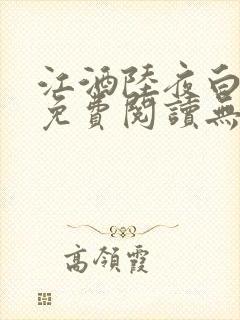 江酒陸夜白
免費閱讀無
高領霞